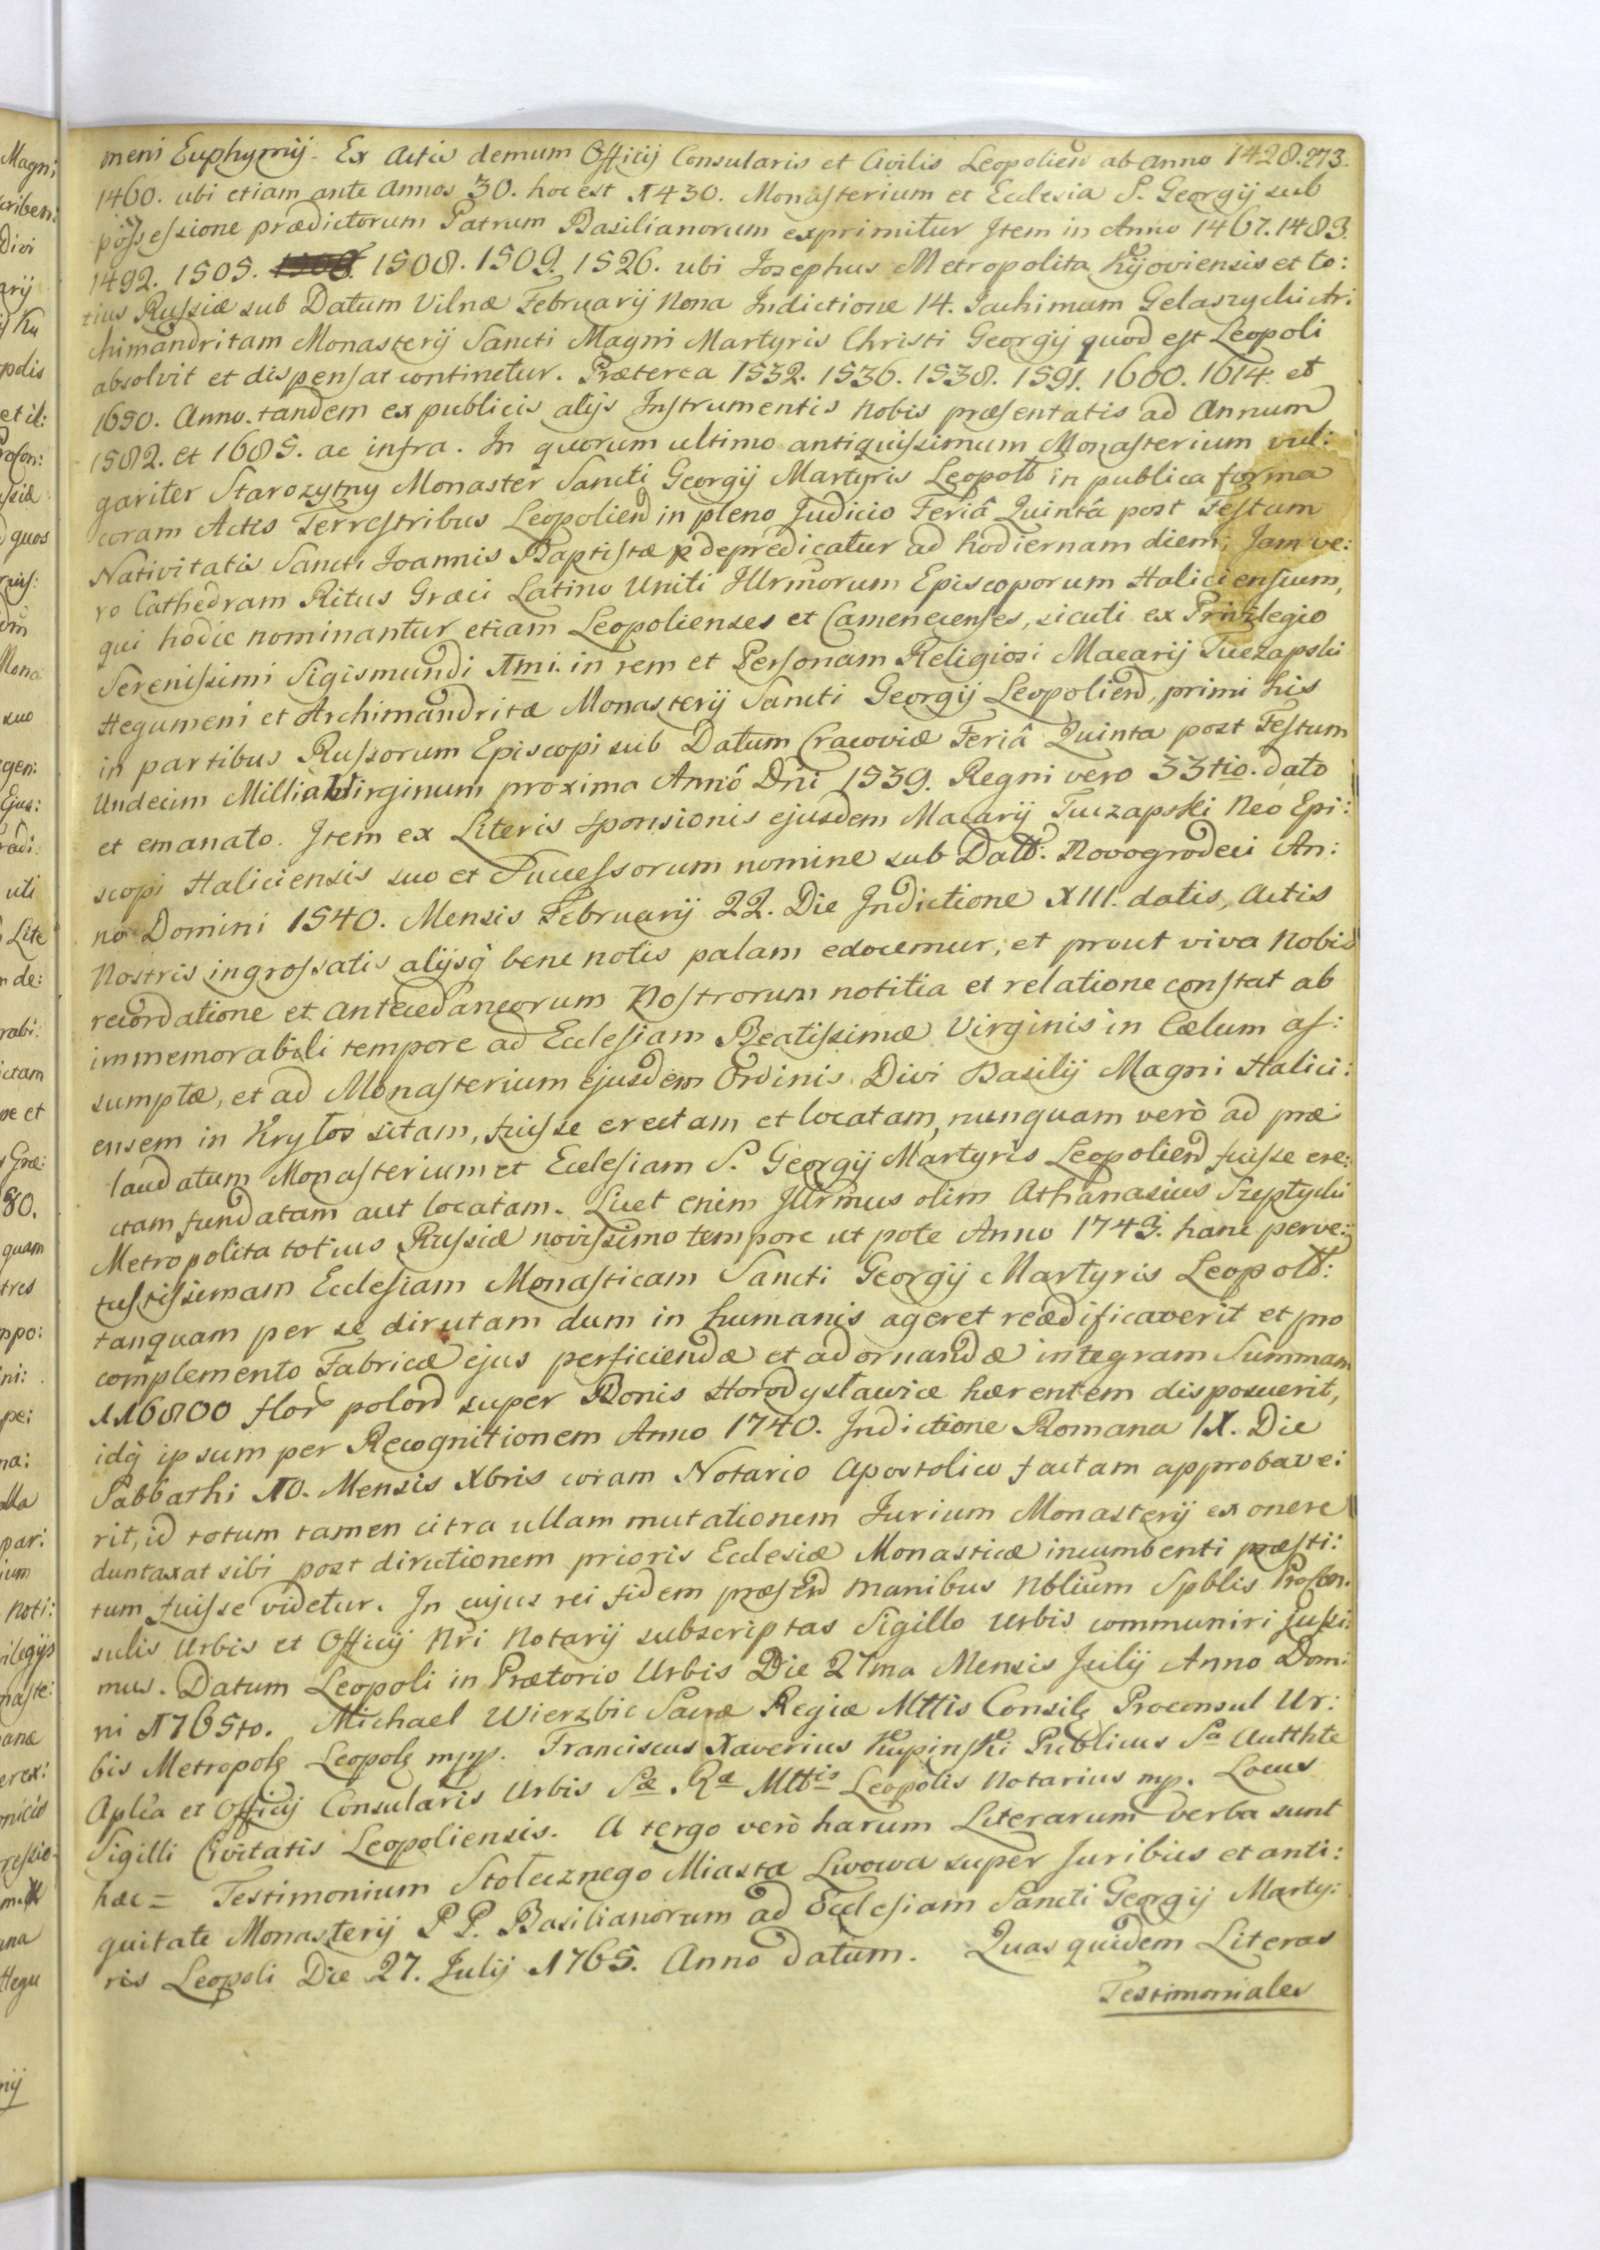 meni Euphymij. Ex Actis demum Officij Consularis et Civilis Leopolien ab Anno 1428. 273.
1460. ubi etiam ante Annos 30. hoc est 1430. Monasterium et Ecclesia S. Georgij sub
possessione prædictorum Patrum Basilianorum exprimitur Item in Anno 1467. 1483.
1492. 1505. 1508. 1509. 1526. ubi Josephus Metropolita Kijoviensis et to:
tius Russiæ sub Datum Vilnæ Februarij Nona Indictione 14. Jachimum Gelaszycki Ar:
chimandritam Monasterij Sancti Magni Martyris Christi Georgij quod est Leopoli
absolvit et dispensat continetur. Præterea 1532. 1536. 1538. 1591. 1600. 1614. et
1650. Anno. tandem ex publicis alijs Instrumentis Nobis præsentatis ad Annum
1582. et 1685. ac infra. In quorum ultimo antiquissimum Monasterium vul:
gariter Starozytny Monaster Sancti Georgij Martyris Leopol in publica forma
coram Actis Terrestribus Leopolien in pleno Judicio Feriâ Quintâ post Festum
Nativitatis Sancti Joannis Baptistæ depredicatur ad hodiernam diem; Jam ve:
ro Cathedram Ritus Græci Latino Uniti Illrmorum Episcoporum Haliciensium,
qui hodie nominantur etiam Leopolienses et Camenecenses, sicuti ex Privilegio
Serenissimi Sigismundi 1mi. in rem et Personam Religiosi Macarij Tuczapski
Hegumeni et Archimandritæ Monasterij Sancti Georgij Leopolien, primi his
in partibus Russorum Episcopi sub Datum Cracoviæ Feriâ Quinta post Festum
Undecim Millia Virginum proxima Annô Dni 1539. Regni vero 33tio. dato
et emanato. Item ex Literis sponsionis ejusdem Macarij Tuczapski Neo Epi:
scopi Haliciensis suo et Successorum nomine sub Datt: Novogrodeci An:
no Domini 1540. Mensis Februarij 22. Die Indictione XIII. datis, Actis
Nostris ingrossatis alijsq bene notis palam edocemur, et prout viva Nobis
recordatione et Antecedaneorum Nostrorum notitia et relatione constat ab
immemorabili tempore ad Ecclesiam Beatissimæ Virginis in Cælum as:
sumptæ, et ad Monasterium ejusdem Ordinis Divi Basilij Magni Halici:
ensem in Krylos sitam, fuisse erectam et locatam, nunquam verò ad præ
laudatum Monasterium et Ecclesiam S. Georgij Martyris Leopolien fuisse ere:
ctam fundatam aut locatam. Licet enim Illrmus olim Athanasius Szeptycki
Metropolita totius Russiæ novissimo tempore ut pote Anno 1743. hanc perve:
tustissimam Ecclesiam Monasticam Sancti Georgij Martyris Leopol:
tanquam per se dirutam dum in humanis ageret reædificaverit et pro
complemento Fabricæ ejus perficiendæ et adornandæ integram Summam
116800 flor polon super Bonis Horodysławice hærentem disposuerit,
idq ipsum per Recognitionem Anno 1740. Indictione Romana IX. Die
Sabbathi 10. Mensis Xbris coram Notario Apostolico factam approbave:
rit, id totum tamen citra ullam mutationem Jurium Monasterij ex onere
duntaxat sibi post dirutionem prioris Ecclesiæ Monasticæ incumbenti præsti:
tum fuisse videtur. In cujus rei fidem præsen manibus Nblium Spblis Procon.
sulis Urbis et Officij Nri Notarij subscriptas Sigillo Urbis communiri jussi:
mus. Datum Leopoli in Prætorio Urbis Die 27ma Mensis Julij Anno Domi:
ni 1765to. Michael Wierzbic Sacræ Regiæ Mttis Consil Proconsul Ur:
bis Metropol Leopol mpp. Franciscus Xaverius Kupinski Publicus Sa Autthte
Aplca et Officij Consularis Urbis Sæ Ræ Mttis Leopolis Notarius mp. Locus
Sigilli Civitatis Leopoliensis. A tergo verò harum Literarum verba sunt
hæc = Testimonium Stołecznego Miasta Lwowa super Juribus et anti:
quitate Monasterij P P. Basilianorum ad Ecclesiam Sancti Georgij Marty:
ris Leopoli Die 27. Julij 1765. Anno datum. Quas quidem Literas
Testimoniales